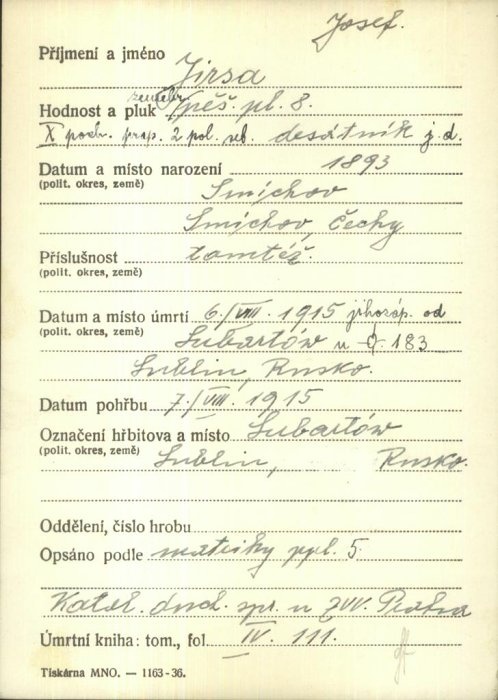 Josef.
Příjmení a jméno Jirsa
zeměbr.
Hodnost a pluk pěš. pl. 8.
X poch. prap. 2 pol. seb. desátník j. d.
Datum a místo narození 1893
(polit. okres, země) Smíchov
Smíchov, Čechy
Příslušnost tamtéž.
(polit. okres, země)
Datum a místo úmrtí 6./VIII. 1915 jihozáp. od
(polit. okres, země) Lubartów u 183
Lublin, Rusko.
Datum pohřbu 7./VIII. 1915
Označení hřbitova a místo Lubartów
(polit. okres, země) Lublin, Rusko.
Oddělení, číslo hrobu
Opsáno podle matriky ppl. 5.
Katol. duch. spr. u ZVV. Praha
Úmrtní kniha: tom., fol. IV. 111.
Tiskárna MNO. — 1163-36.